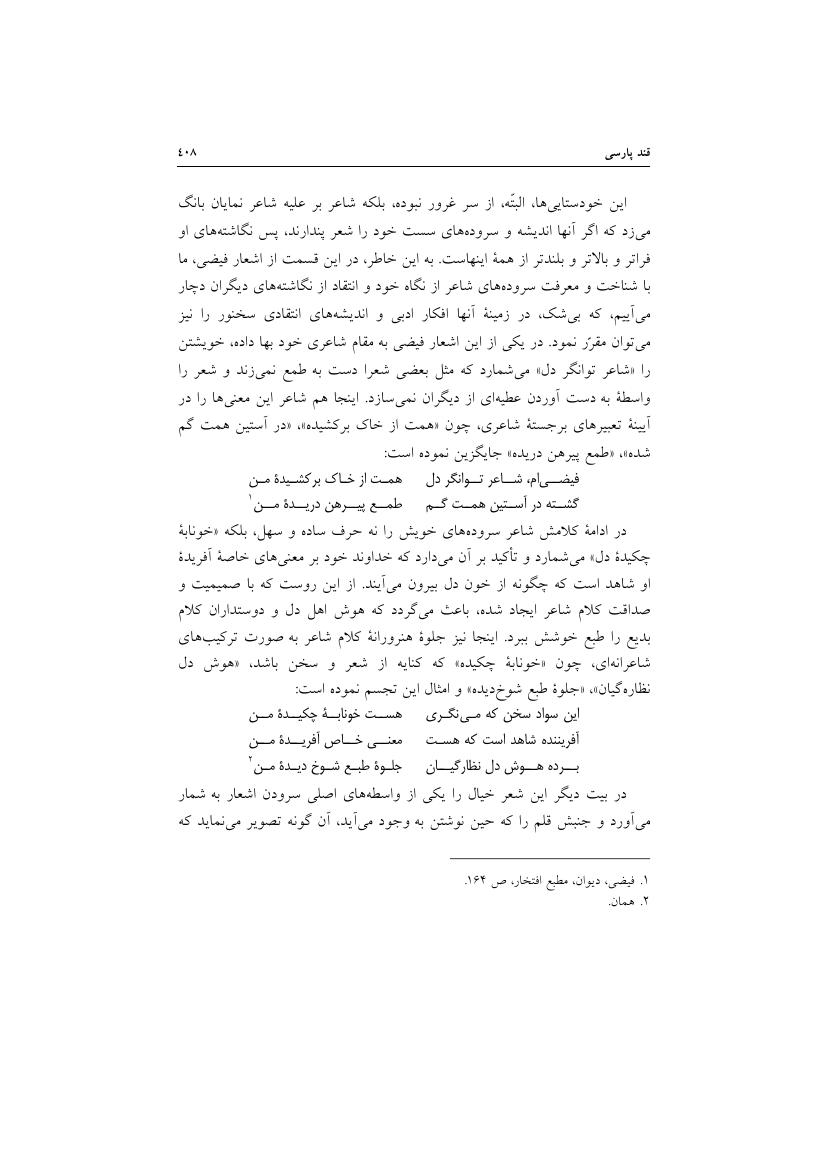 قند پارسی ٤٠٨
این خودستایی‌ها، البتّه، از سر غرور نبوده، بلکه شاعر بر علیه شاعر نمایان بانگ
می‌زد که اگر آنها اندیشه و سروده‌های سست خود را شعر پندارند، پس نگاشته‌های او
فراتر و بالاتر و بلندتر از همهٔ اینهاست. به این خاطر، در این قسمت از اشعار فیضی، ما
با شناخت و معرفت سروده‌های شاعر از نگاه خود و انتقاد از نگاشته‌های دیگران دچار
می‌آییم، که بی‌شک، در زمینهٔ آنها افکار ادبی و اندیشه‌های انتقادی سخنور را نیز
می‌توان مقرّر نمود. در یکی از این اشعار فیضی به مقام شاعری خود بها داده، خویشتن
را «شاعر توانگر دل» می‌شمارد که مثل بعضی شعرا دست به طمع نمی‌زند و شعر را
واسطهٔ به دست آوردن عطیه‌ای از دیگران نمی‌سازد. اینجا هم شاعر این معنی‌ها را در
آیینهٔ تعبیرهای برجستهٔ شاعری، چون «همت از خاک برکشیده»، «در آستین همت گم
شده»، «طمع پیرهن دریده» جایگزین نموده است:
فیضی‌ام، شاعر توانگر دل همت از خاک برکشیدهٔ من
گشته در آستین همت گم طمع پیرهن دریدهٔ من۱
در ادامهٔ کلامش شاعر سروده‌های خویش را نه حرف ساده و سهل، بلکه «خونابهٔ
چکیدهٔ دل» می‌شمارد و تأکید بر آن می‌دارد که خداوند خود بر معنی‌های خاصهٔ آفریدهٔ
او شاهد است که چگونه از خون دل بیرون می‌آیند. از این روست که با صمیمیت و
صداقت کلام شاعر ایجاد شده، باعث می‌گردد که هوش اهل دل و دوستداران کلام
بدیع را طبع خوشش ببرد. اینجا نیز جلوهٔ هنرورانهٔ کلام شاعر به صورت ترکیب‌های
شاعرانه‌ای، چون «خونابهٔ چکیده» که کنایه از شعر و سخن باشد، «هوش دل
نظاره‌گیان»، «جلوهٔ طبع شوخ‌دیده» و امثال این تجسم نموده است:
این سواد سخن که می‌نگری هست خونابهٔ چکیدهٔ من
آفریننده شاهد است که هست معنی خاص آفریدهٔ من
برده هوش دل نظارگیان جلوهٔ طبع شوخ دیدهٔ من۲
در بیت دیگر این شعر خیال را یکی از واسطه‌های اصلی سرودن اشعار به شمار
می‌آورد و جنبش قلم را که حین نوشتن به وجود می‌آید، آن گونه تصویر می‌نماید که
۱. فیضی، دیوان، مطبع افتخار، ص ۱۶۴.
۲. همان.